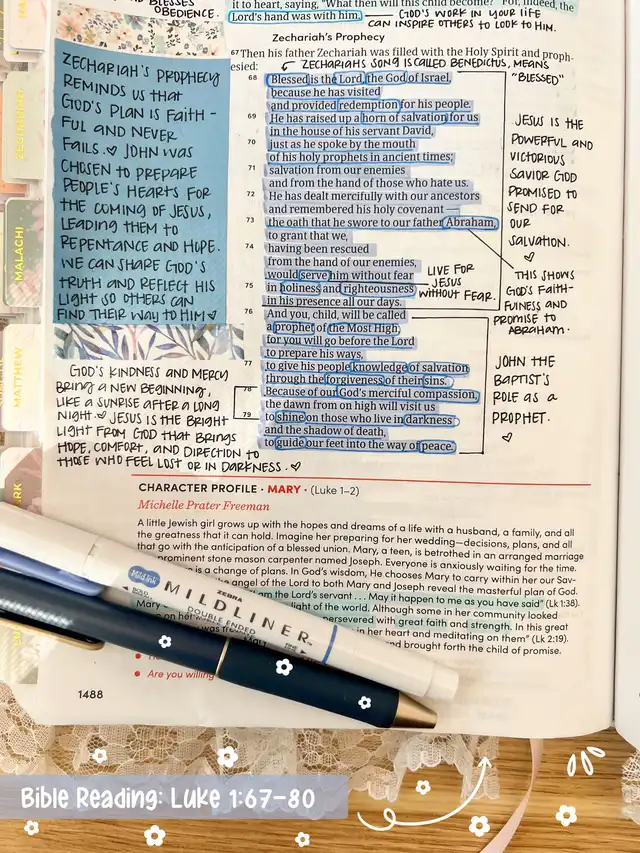 BLESSES
OBEDIENCE.
it to heart, saying, "What then will this child become?" For, indeed, the
Lord's hand was with him.
GOD'S WORK IN YOUR LIFE
CAN INSPIRE OTHERS TO LOOK TO HIM.
Zechariah's Prophecy
67 Then his father Zechariah was filled with the Holy Spirit and proph-
esied:
ZECHARIAHS SONG IS CALLED BENEDICTUS, MEANS
"BLESSED"
68 Blessed is the Lord, the God of Israel,
because he has visited
and provided redemption for his people.
69 He has raised up a horn of salvation for us
in the house of his servant David,
70 just as he spoke by the mouth
of his holy prophets in ancient times;
71 salvation from our enemies
and from the hand of those who hate us.
72 He has dealt mercifully with our ancestors
and remembered his holy covenant —
73 the oath that he swore to our father Abraham,
to grant that we,
74 having been rescued
from the hand of our enemies,
would serve him without fear
75 in holiness and righteousness
in his presence all our days.
76 And you, child, will be called
a prophet of the Most High,
for you will go before the Lord
to prepare his ways,
77 to give his people knowledge of salvation
through the forgiveness of their sins.
78 Because of our God's merciful compassion,
the dawn from on high will visit us
79 to shine on those who live in darkness
and the shadow of death,
to guide our feet into the way of peace.
ZECHARIAH'S PROPHECY
REMINDS US THAT
GOD'S PLAN IS FAITH-
FUL AND NEVER
FAILS. ♡ JOHN WAS
CHOSEN TO PREPARE
PEOPLE'S HEARTS FOR
THE COMING OF JESUS,
LEADING THEM TO
REPENTANCE AND HOPE.
WE CAN SHARE GOD'S
TRUTH AND REFLECT HIS
LIGHT SO OTHERS CAN
FIND THEIR WAY TO HIM ♡
GOD'S KINDNESS AND MERCY
BRING A NEW BEGINNING,
LIKE A SUNRISE AFTER A LONG
NIGHT. ♡ JESUS IS THE BRIGHT
LIGHT FROM GOD THAT BRINGS
HOPE, COMFORT, AND DIRECTION TO
THOSE WHO FEEL LOST OR IN DARKNESS. ♡
JESUS IS THE
POWERFUL AND
VICTORIOUS
SAVIOR GOD
PROMISED TO
SEND FOR
OUR
SALVATION.
♡
LIVE FOR
JESUS
WITHOUT FEAR.
THIS SHOWS
GOD'S FAITH-
FULNESS AND
PROMISE TO
ABRAHAM.
JOHN THE
BAPTIST'S
ROLE AS A
PROPHET.
♡
MALACHI
MATTHEW
CHARACTER PROFILE • MARY • (Luke 1–2)
Michelle Prater Freeman
A little Jewish girl grows up with the hopes and dreams of a life with a husband, a family, and all
the greatness that it can hold. Imagine her preparing for her wedding—decisions, plans, and all
that go with the anticipation of a blessed union. Mary, a teen, is betrothed in an arranged marriage
prominent stone mason carpenter named Joseph. Everyone is anxiously waiting for the time.
is a change of plans. In God's wisdom, He chooses Mary to carry within her our Sav-
angel of the Lord to both Mary and Joseph reveal the masterful plan of God.
am the Lord's servant . . . May it happen to me as you have said" (Lk 1:38).
Mary
light of the world. Although some in her community looked
on her
persevered with great faith and strength. In this great
in her heart and meditating on them" (Lk 2:19).
and brought forth the child of promise.
• Are you willing
1488
Mildliner
ZEBRA
MILDLINER™
DOUBLE ENDED
Bible Reading: Luke 1:67-80